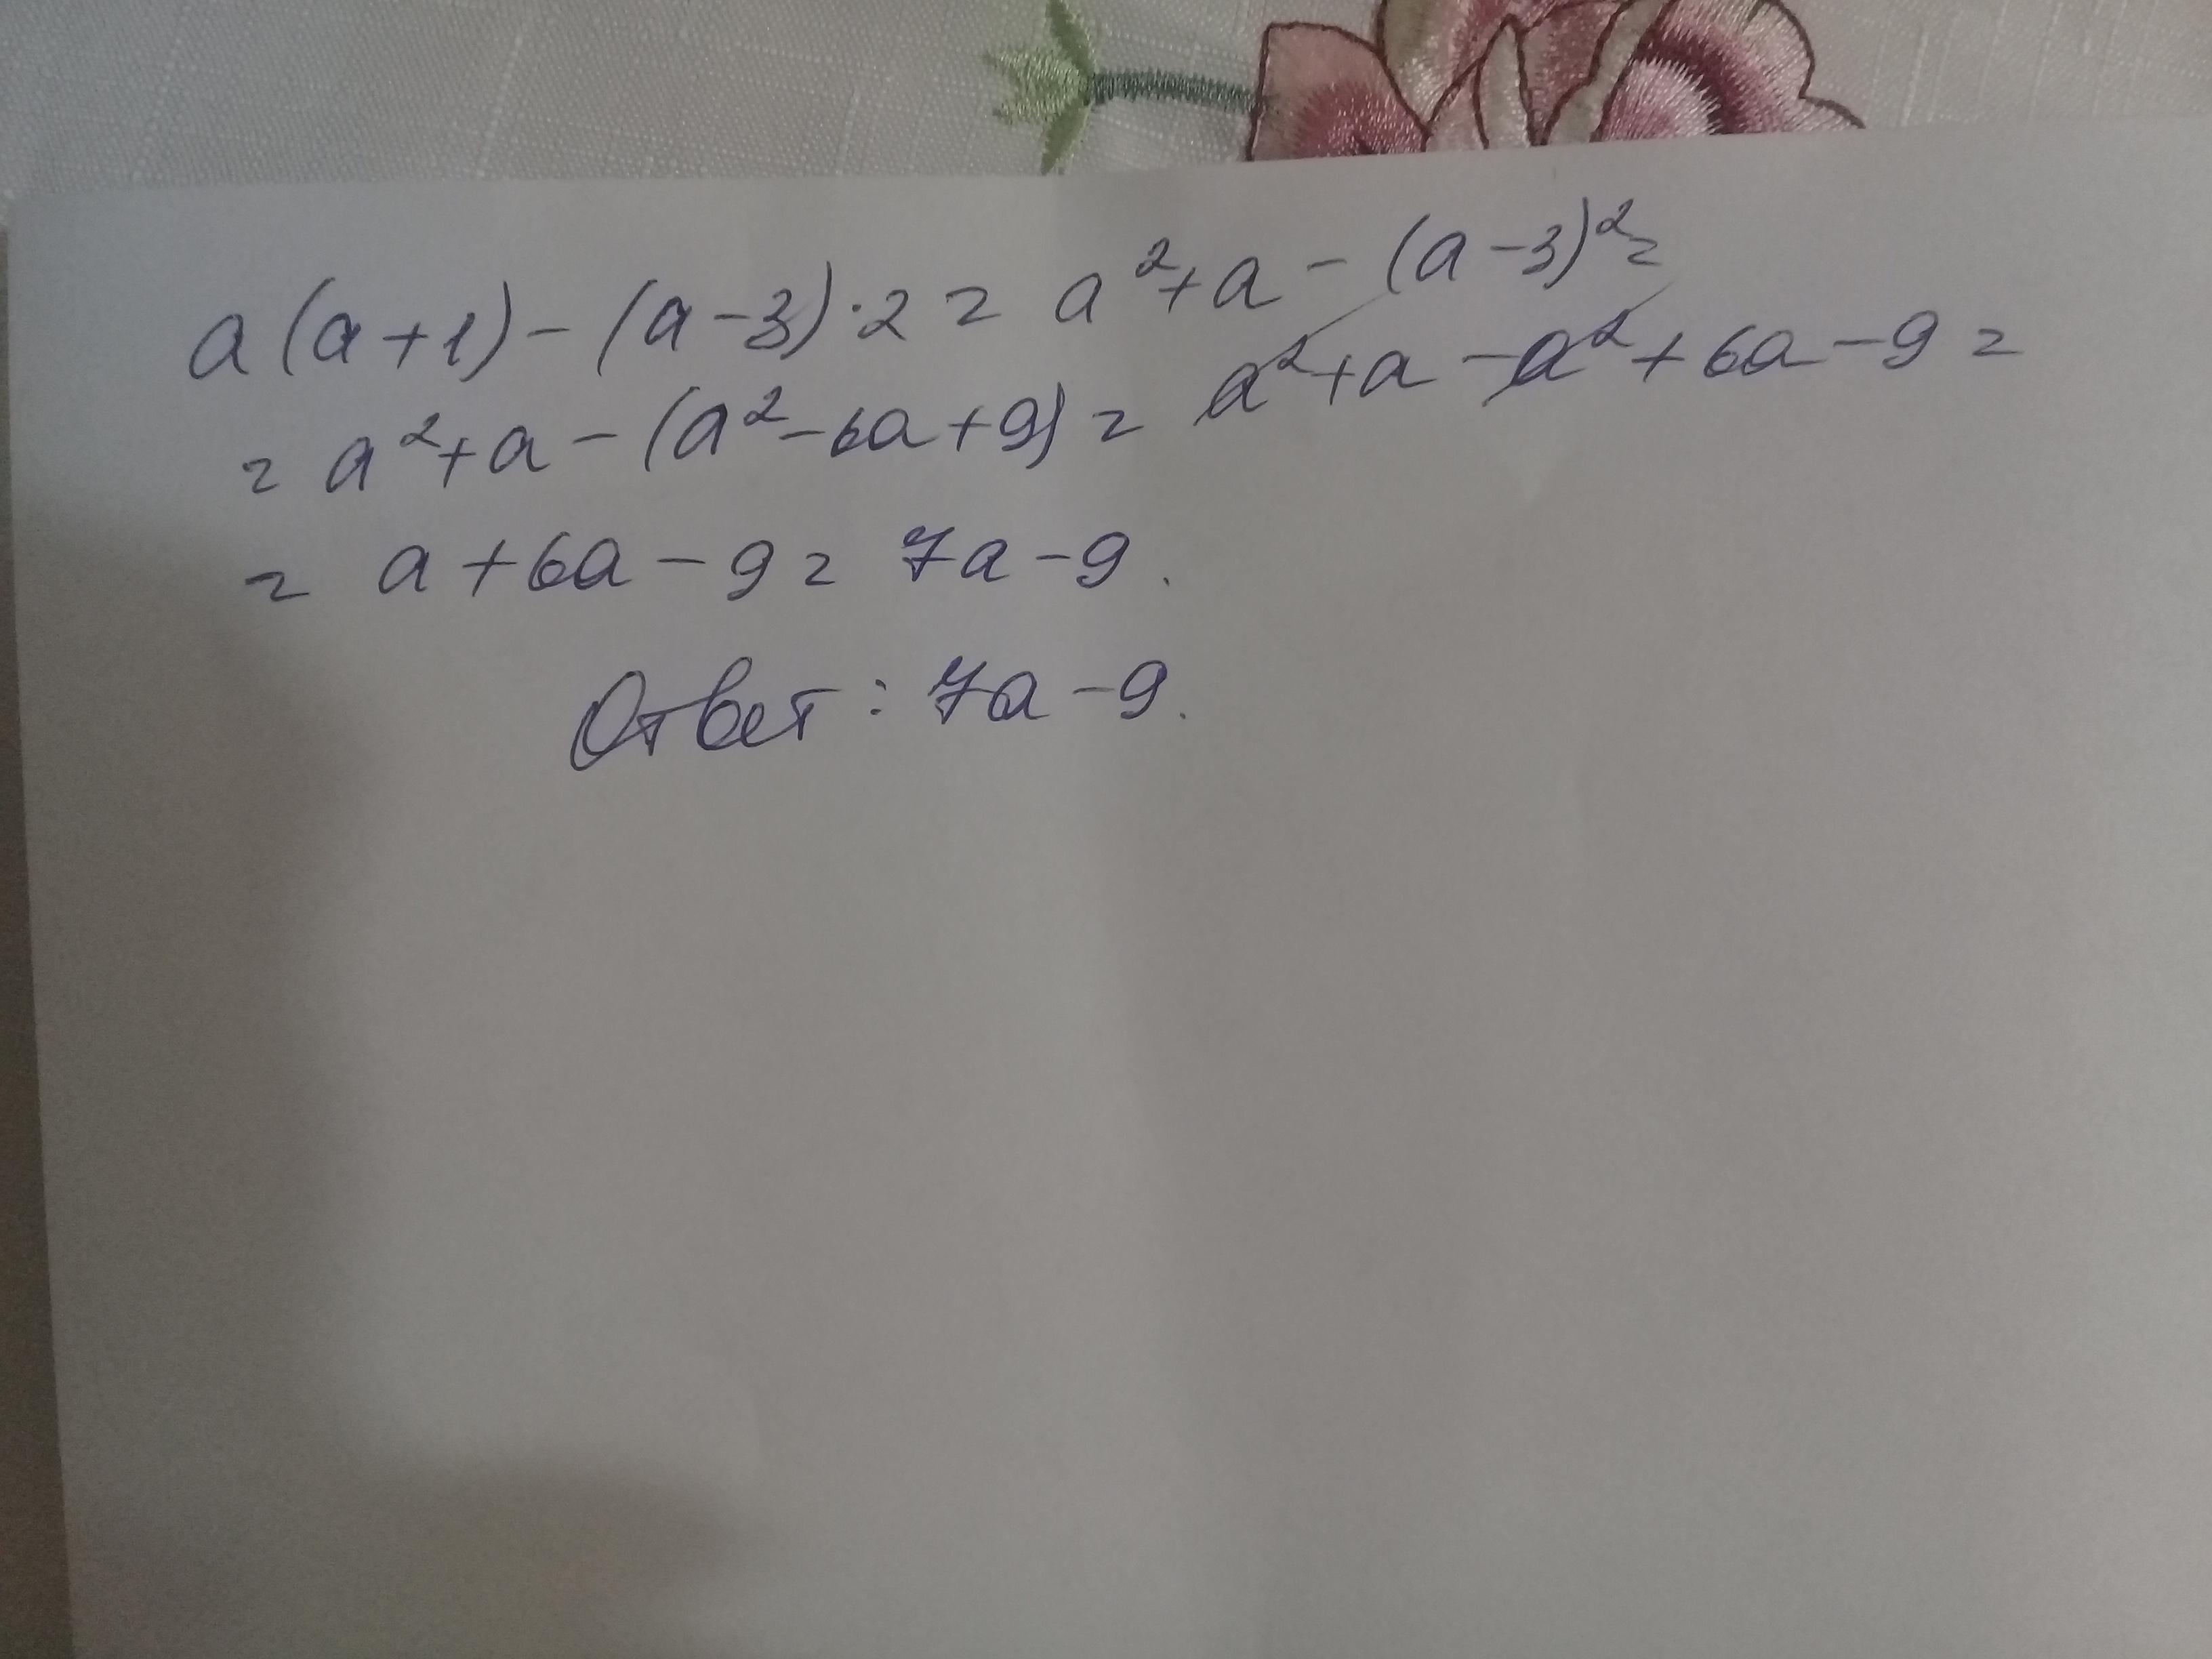 a(a+1)-(a-3)·2=a²+a-(a-3)²=
=a²+a-(a²-6a+9)=a²+a-a²+6a-9=
=a+6a-9=7a-9.
Ответ: 7a-9.